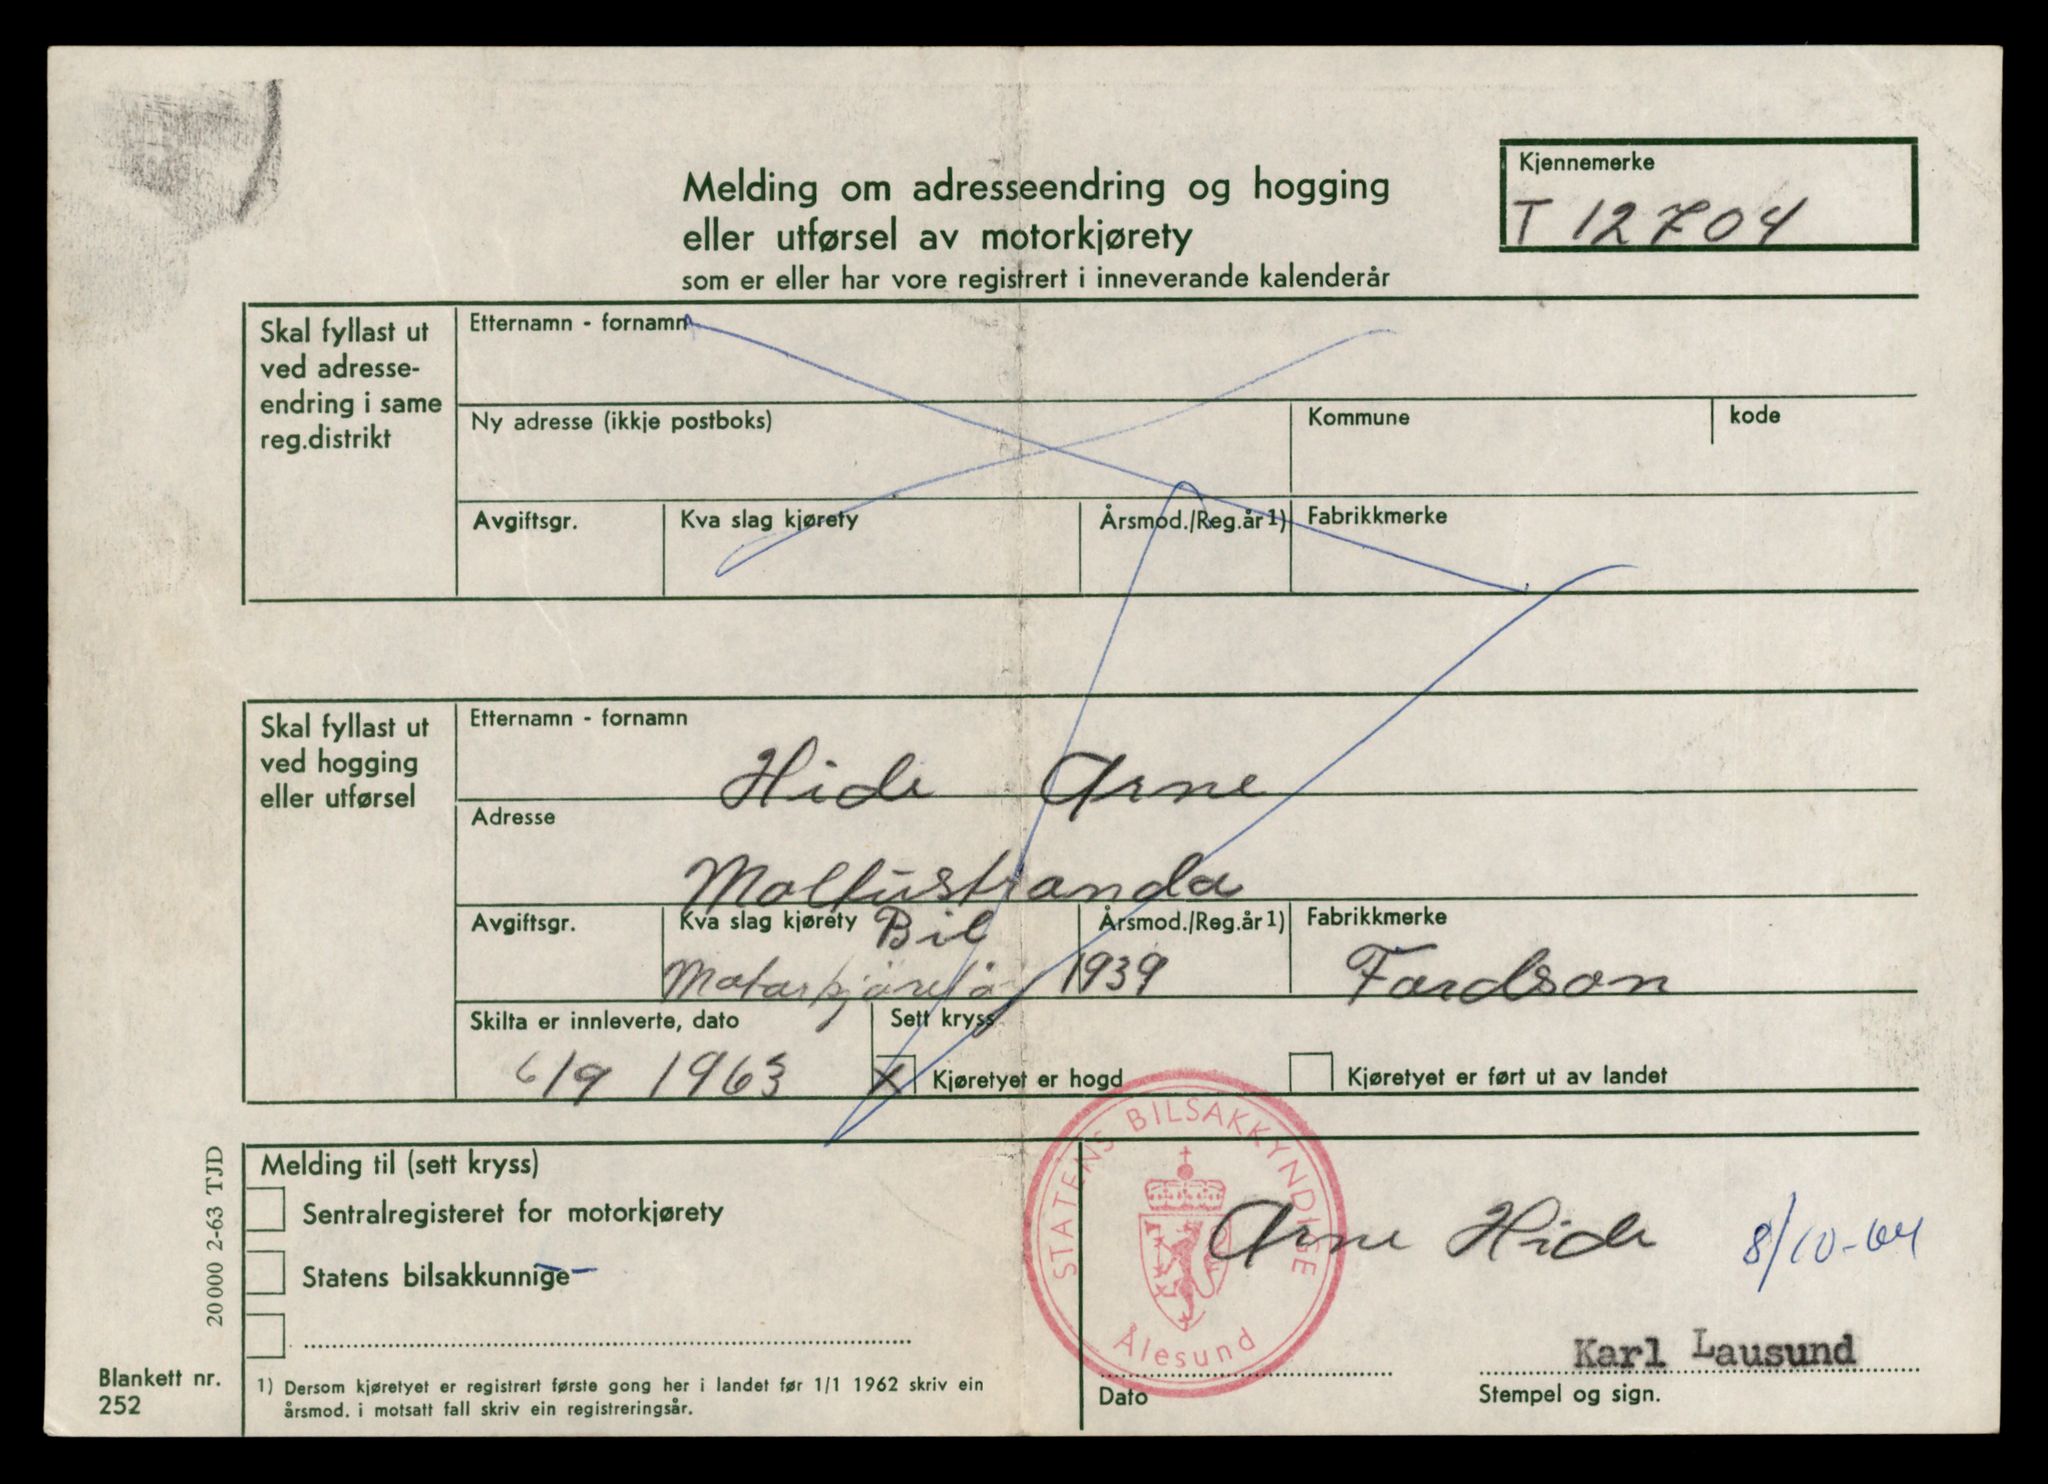 Kjennemerke
T 12704
Melding om adresseendring og hogging
eller utførsel av motorkjørety
som er eller har vore registrert i inneverande kalenderår
Skal fyllast ut
ved adresse-
endring i same
reg.distrikt
Etternamn - fornamn
Ny adresse (ikkje postboks)
Kommune
kode
Avgiftsgr.
Kva slag kjørety
Årsmod./Reg.år 1)
Fabrikkmerke
Skal fyllast ut
ved hogging
eller utførsel
Etternamn - fornamn
Hide Arne
Adresse
Moltustranda
Avgiftsgr.
Kva slag kjørety Bil
Årsmod./Reg.år 1)
1939
Fabrikkmerke
Fordson
Skilta er innleverte, dato
6/9 1963
Sett kryss
X Kjøretyet er hogd
Kjøretyet er ført ut av landet
Melding til (sett kryss)
Sentralregisteret for motorkjørety
Statens bilsakkunnige
STATENS BILSAKKYNDIGE
Ålesund
Arne Hide 8/10-64
Karl Lausund
Dato
Stempel og sign.
1) Dersom kjøretyet er registrert første gong her i landet før 1/1 1962 skriv ein
årsmod. i motsatt fall skriv ein registreringsår.
20 000 2-63 TJD
Blankett nr.
252